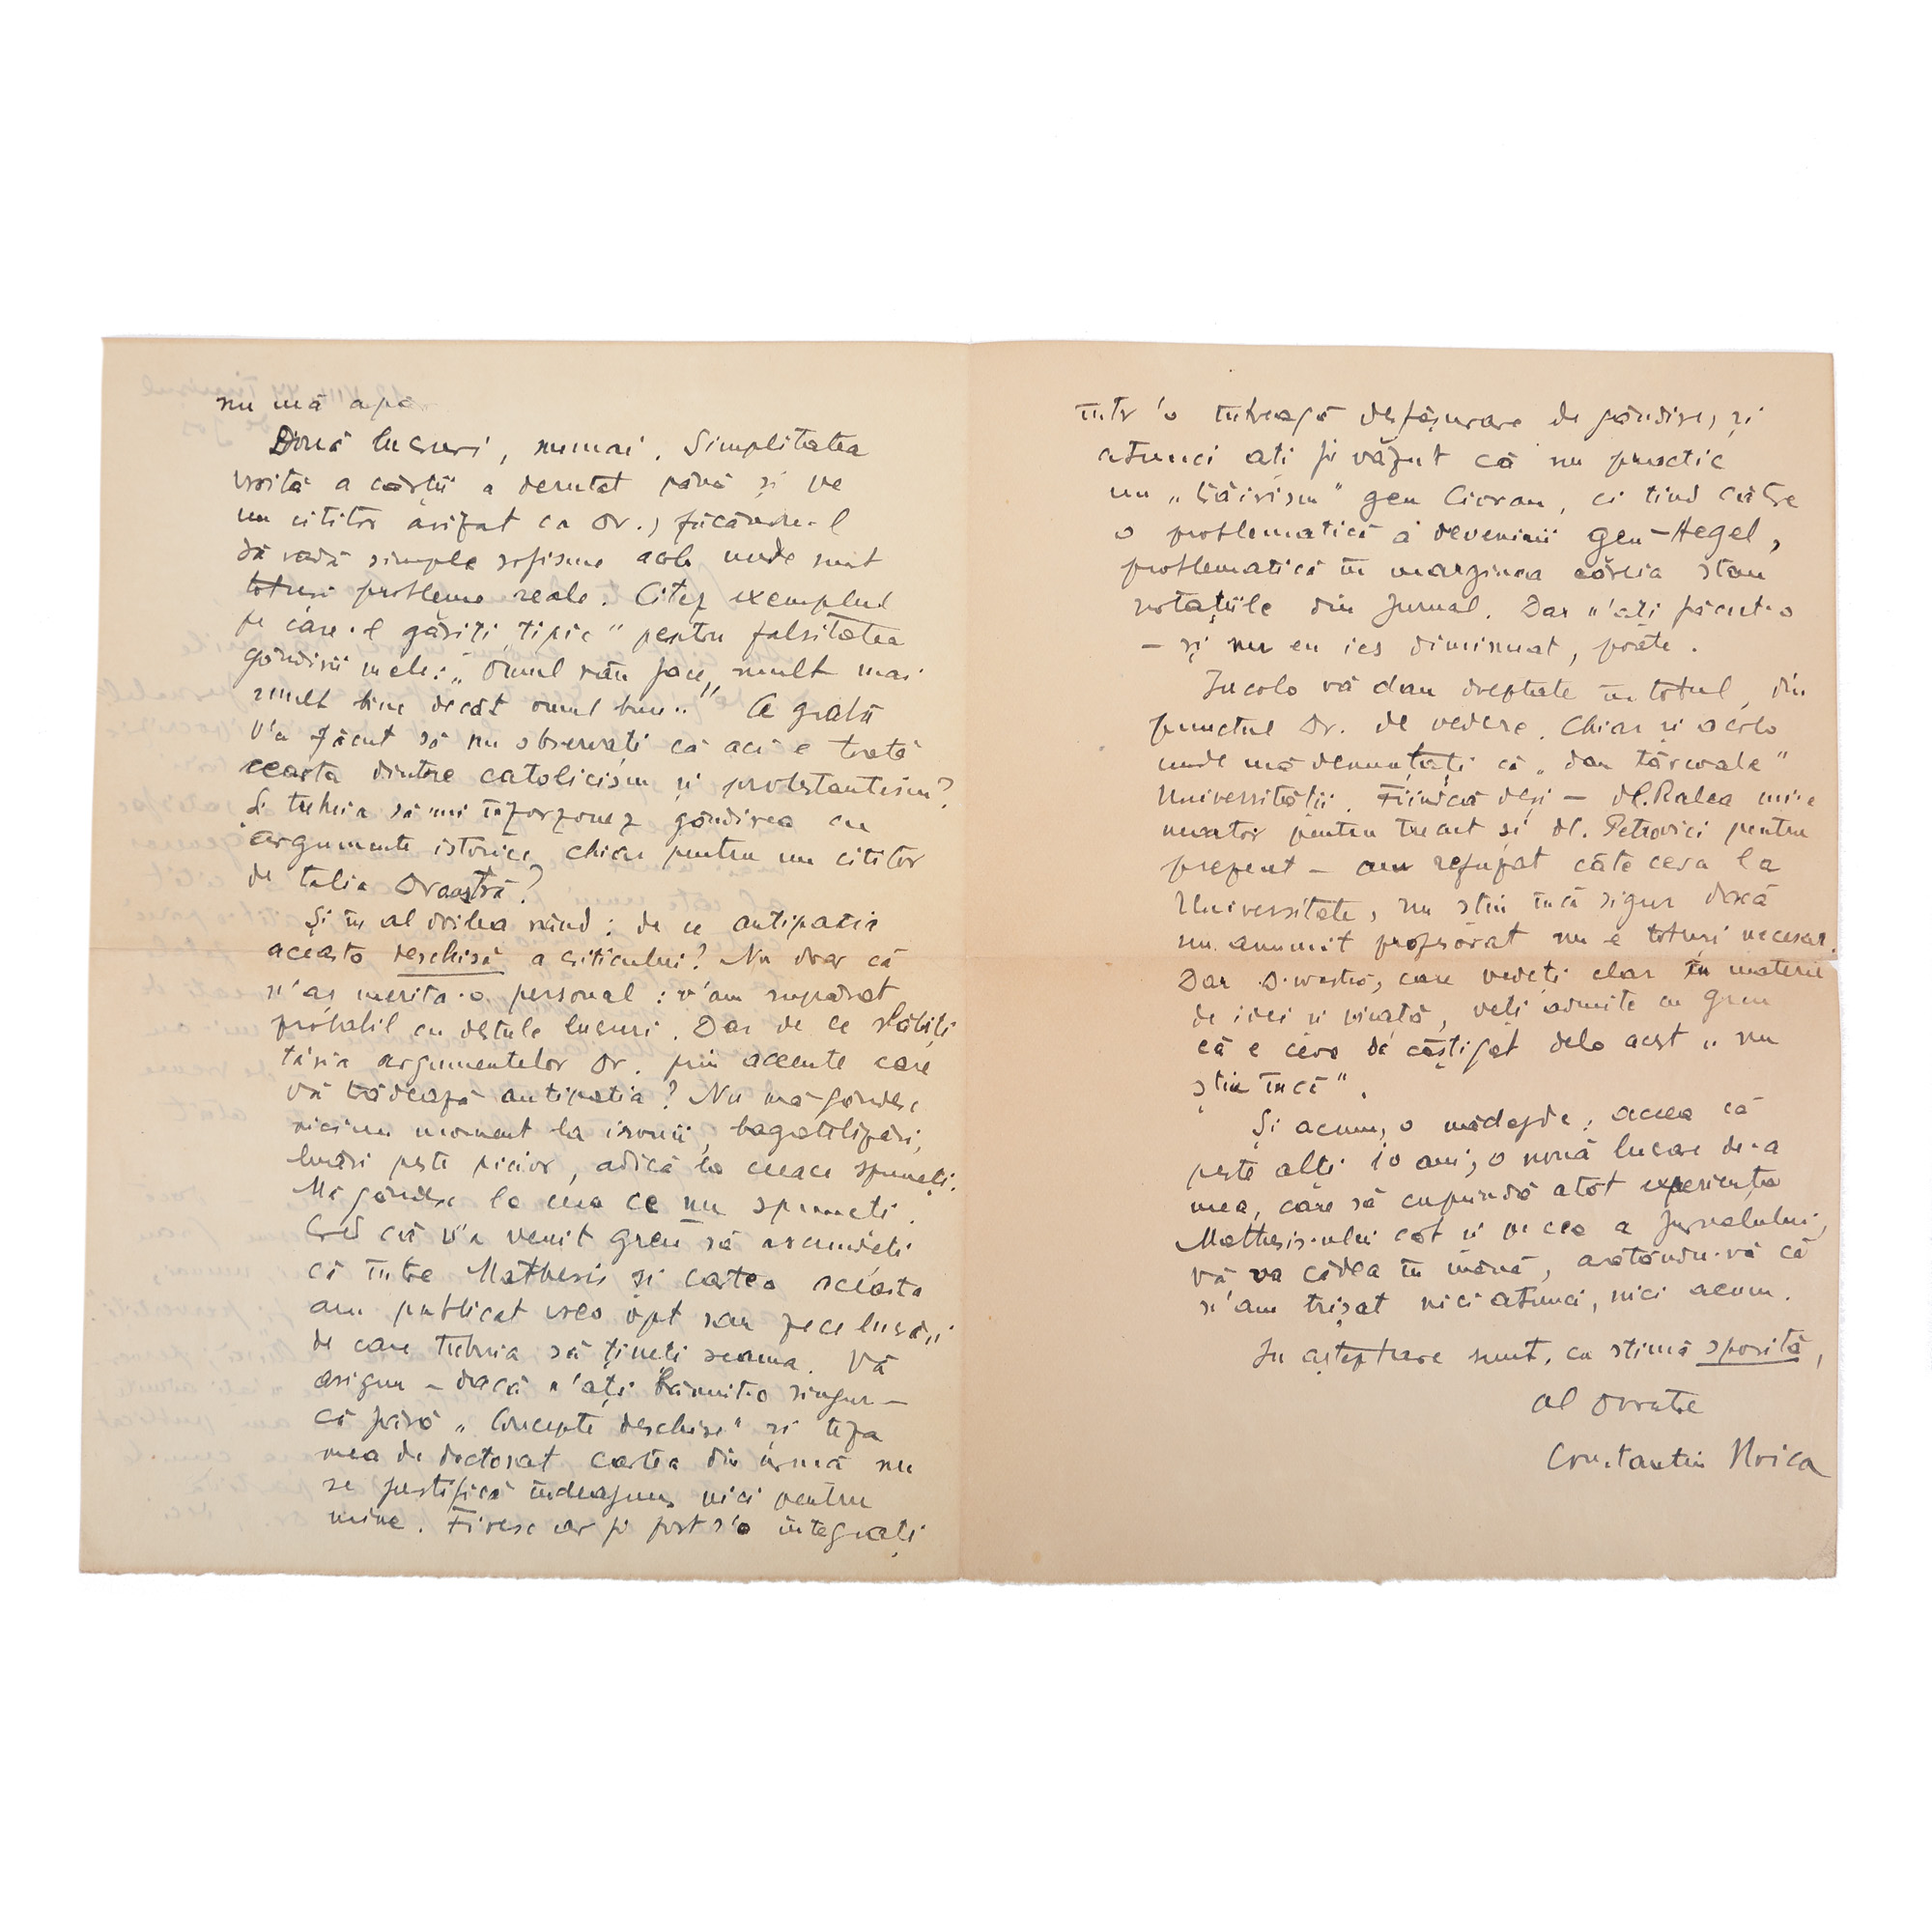 nu mă apă
Două lucruri, numai. Simplitatea
voită a cărții a derutat până și pe
un cititor avizat ca Dv., făcându-l
să vadă simple sofisme acolo unde sunt
totuși probleme reale. Citez exemplul
pe care-l găsiți „tipic" pentru falsitatea
gândirii mele: „Omul rău face mult mai
mult bine decât omul bun.." Ce grabă
v'a făcut să nu observați că aci e toată
cearta dintre catolicism și protestantism?
Și trebuia să-mi înzorzonez gândirea cu
argumente istorice, chiar pentru un cititor
de talia Dvoastră?
Și în al doilea rând: de ce antipatia
aceasta deschisă a criticului? Nu doar că
n'aș merita-o personal: v'am supărat
probabil cu destule lucruri. Dar de ce slăbiți
tăria argumentelor Dv. prin accente care
vă trădează antipatia? Nu mă gândesc
niciun moment la ironii, bagatelizări,
luări peste picior, adică la ceeace spuneți.
Mă gândesc la ceea ce nu spuneți.
Cred că v'a venit greu să ascundeți
că între Mathesis și cartea aceasta
am publicat vreo opt sau zece lucrări
de care trebuia să țineți seama. Vă
asigur – dacă n'ați bănuit-o singur –
că fără „Concepte deschise" și teza
mea de doctorat cartea din urmă nu
se justifică îndeajuns nici pentru
mine. Firesc ar fi fost s'o integrați
într'o întreagă desfășurare de gândire, și
atunci ați fi văzut că nu practic
un „trăirism" gen Cioran, ci tind către
o problematică a devenirii gen-Hegel,
problematică în marginea căreia stau
notațiile din Jurnal. Dar n'ați făcut-o
– și nu eu ies diminuat, poate.
Incolo vă dau dreptate în totul, din
punctul Dv. de vedere. Chiar și acolo
unde mă denunțați că „dau târcoale"
Universității. Fiindcă deși – dl. Ralea mi-e
martor pentru trecut și dl. Petrovici pentru
prezent – am refuzat câte ceva la
Universitate, nu știu încă sigur dacă
un anumit profesorat nu e totuși necesar.
Dar D-voastră, care vedeți clar în materie
de idei și viață, veți admite cu greu
că e ceva de câștigat dela acest „nu
știu încă".
Și acum, o nădejde: aceea că
peste alți 10 ani, o nouă lucrare de-a
mea, care să cuprindă atât experiența
Mathesis-ului cât și pe cea a Jurnalului,
vă va cădea în mână, arătându-vă că
n'am trișat nici atunci, nici acum.
In așteptare sunt, cu stimă sporită,
al Dvoastre
Constantin Noica